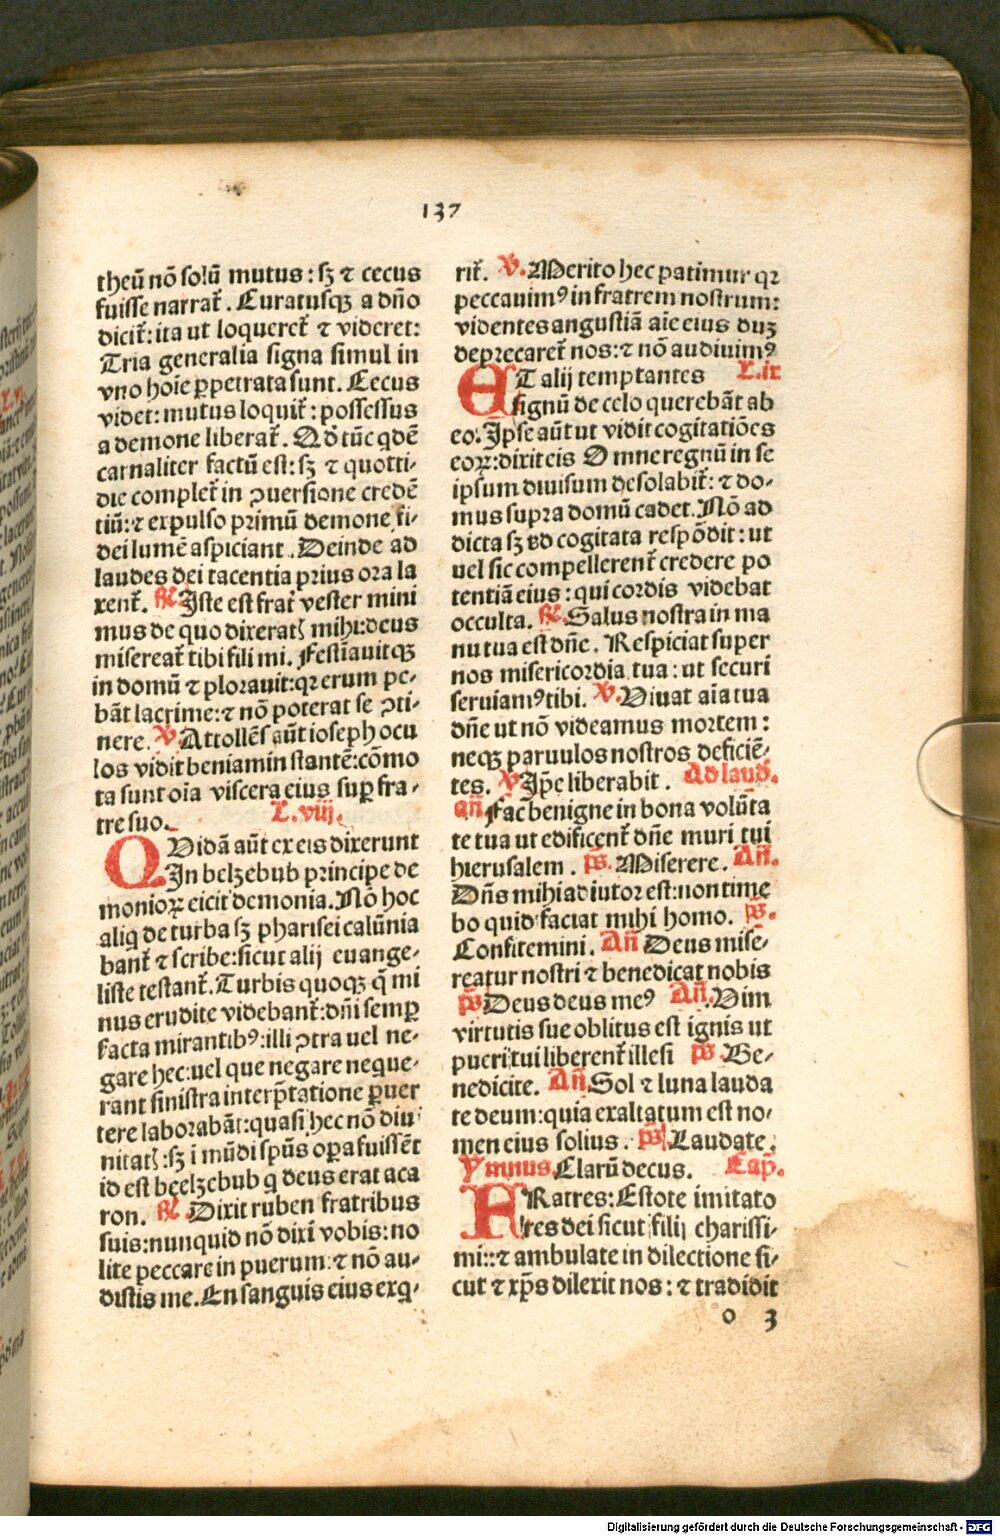 137
theū nō solū mutus : sꝫ ⁊ cecus
fuisse narrat̄ . Curatusqꝫ a dn̄o
dicit̄ : ita ut loqueret̄ ⁊ videret :
Tria generalia signa simul in
vno hoīe ꝑpetrata sunt. Cecus
videt : mutus loquit̄ : possessus
a demone liberat̄ . Qd̄ tūc qdē
carnaliter factū est : sꝫ ⁊ quotti-
die complet̄ in ꝯuersione credē
tiū : ⁊ expulso primū demone fi-
dei lumē aspiciant . Deinde ad
laudes dei tacentia prius ora la
xent̄. ℟ Iste est frat̄ vester mini
mus de quo dixeratꝭ mihi : deus
misereat̄ tibi fili mi. Festīauitqꝫ
in domū ⁊ plorauit : qꝛ erum pe-
bāt lacrime : ⁊ nō poterat se ꝯti-
nere. ℣. Attollēs aūt ioseph ocu
los vidit beniamin stantē : cōmo
ta sunt oīa viscera eius suꝑ fra-
tre suo. L. viij.
QVidā aūt ex eis dixerunt
In belzebub principe de
monioꝝ eicit demonia. Nō hoc
aliq̄ de turba sꝫ pharisei calūnia
bant̄ ⁊ scribe : sicut alij euange-
liste testant̄. Turbis quoqꝫ q̄ mi
nus erudite videbant̄ : dn̄i semꝑ
facta mirantibꝰ : illi ꝯtra uel ne-
gare hec : uel que negare neque-
rant sinistra interp̄tatione ꝑuer
tere laborabāt : quasi hec nō diui
nitatꝭ : sꝫ i mūdi sp̄us oꝑa fuissēt
id est beelzebub q̄ deus erat aca
ron. ℟ Dixit ruben fratribus
suis : nunquid nō dixi vobis : no
lite peccare in puerum : ⁊ nō au-
distis me. En sanguis eius exq̄-
rit̄. ℣. Merito hec patimur qꝛ
peccauimꝰ in fratrem nostrum :
videntes angustiā aīe eius duꝫ
deprecaret̄ nos : ⁊ nō audiuimꝰ
ET alij temptantes L. ix
signū de celo querebāt ab
eo. Ip̄se aūt ut vidit cogitatiōes
eoꝝ : dixit eis Omne regnū in se
ipsum diuisum desolabit̄ : ⁊ do-
mus supra domū cadet. Nō ad
dicta sꝫ ad cogitata respōdit : ut
uel sic compellerent̄ credere po
tentiā eius : qui cordis videbat
occulta. ℟ Salus nostra in ma
nu tua est dn̄e. Respiciat super
nos misericordia tua : ut securi
seruiamꝰ tibi. ℣. Viuat aīa tua
dn̄e ut nō videamus mortem :
neqꝫ paruulos nostros deficiē-
tes. ℣ Ip̄e liberabit . Ad laud.
an̄ Fac benigne in bona volūta
te tua ut edificent̄ dn̄e muri tui
hierusalem . p̄s. Miserere . An̄.
Dn̄s mihi adiutor est : non time
bo quid faciat mihi homo. p̄s.
Confitemini. An̄ Deus mise-
reatur nostri ⁊ benedicat nobis
p̄s Deus deus meꝰ An̄. Vim
virtutis sue oblitus est ignis ut
pueri tui liberent̄ illesi p̄s. Be-
nedicite. An̄. Sol ⁊ luna lauda
te deum : quia exaltatum est no-
men eius solius . p̄s. Laudate.
Ymnus. Clarū decus. Cap̄.
FRatres : Estote imitato
res dei sicut filij charissi-
mi : : ⁊ ambulate in dilectione si-
cut ⁊ xp̄s dilexit nos : ⁊ tradidit
o 3
Digitalisierung gefördert durch die Deutsche Forschungsgemeinschaft - DFG